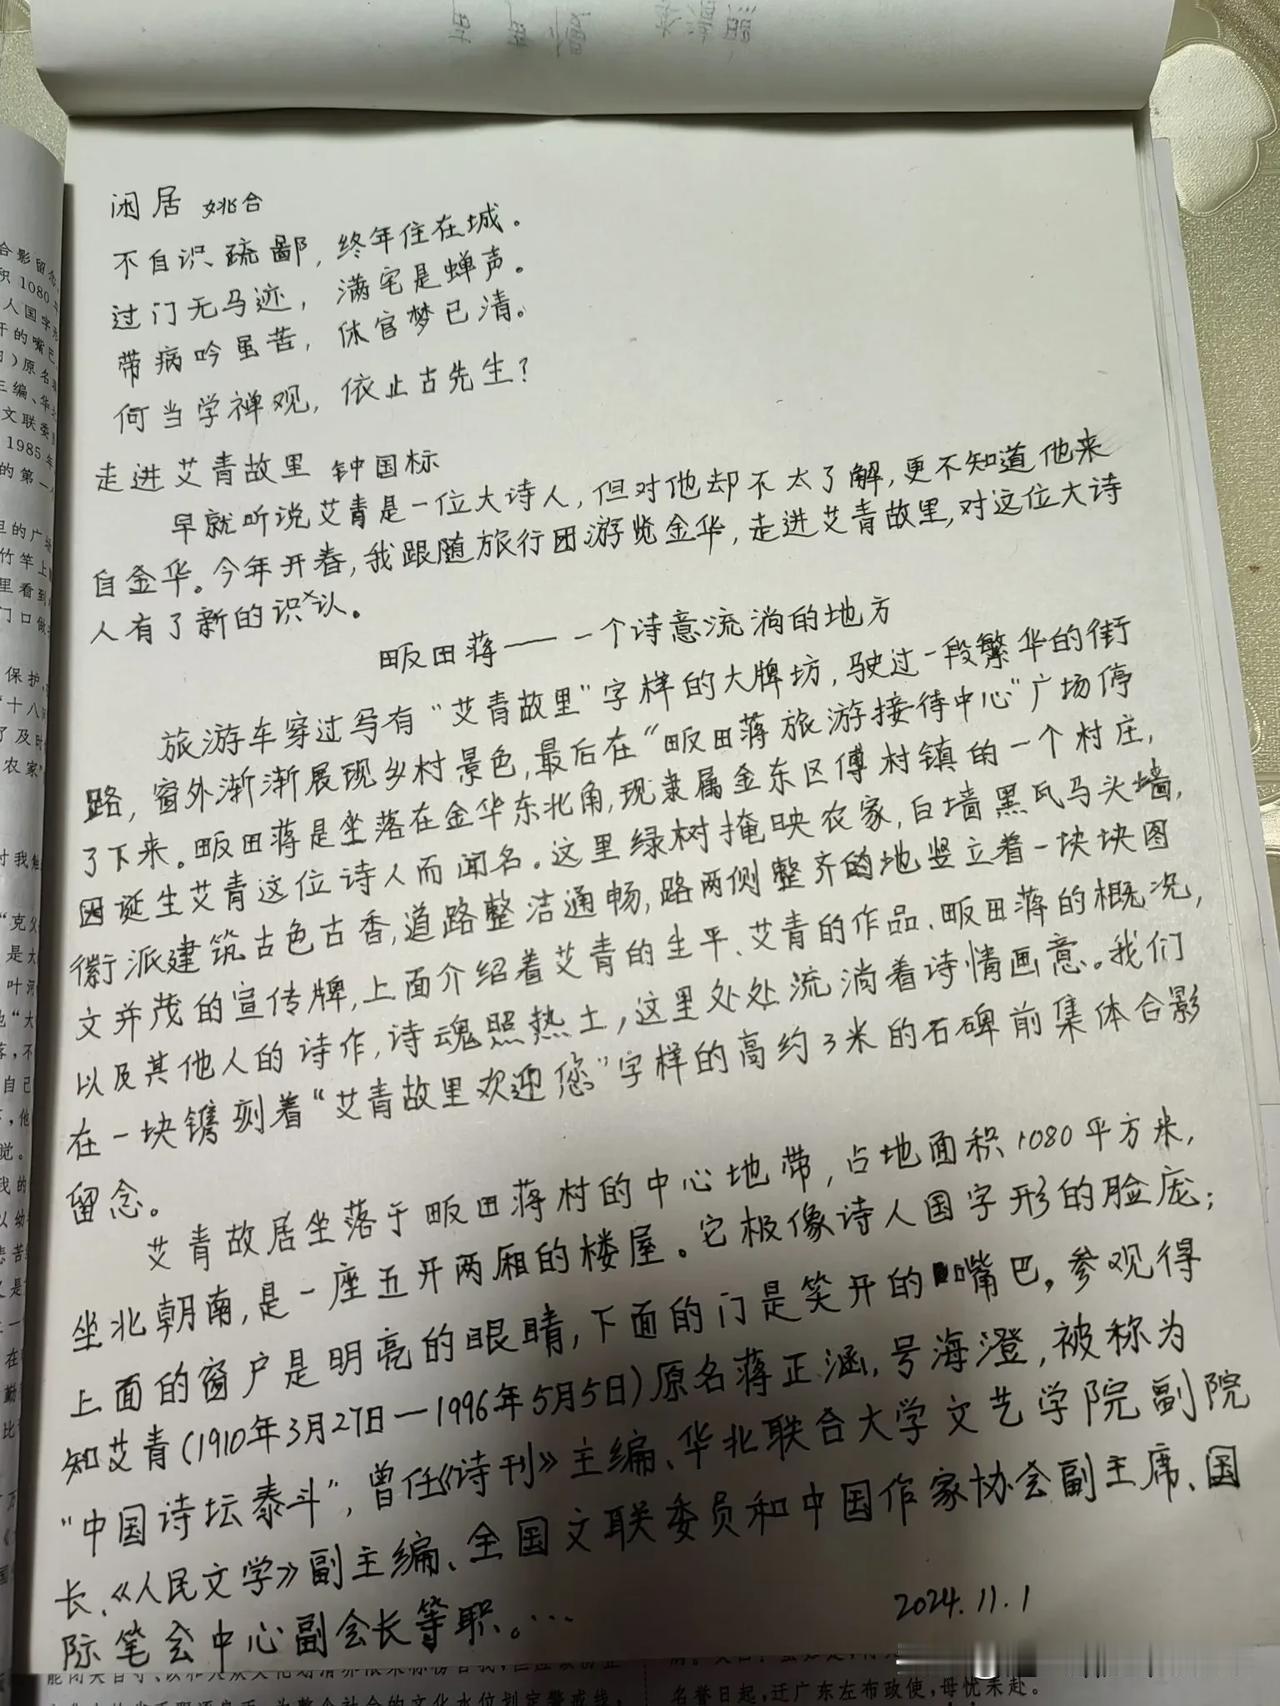 闲居 姚合
不自识疏鄙，终年住在城。
过门无马迹，满宅是蝉声。
带病吟虽苦，休官梦已清。
何当学禅观，依止古先生？
走进艾青故里 钟国标
早就听说艾青是一位大诗人，但对他却不太了解，更不知道他来
自金华。今年开春，我跟随旅行团游览金华，走进艾青故里，对这位大诗
人有了新的识认。
畈田蒋——一个诗意流淌的地方
旅游车穿过写有“艾青故里”字样的大牌坊，驶过一段繁华的街
路，窗外渐渐展现乡村景色，最后在“畈田蒋旅游接待中心”广场停
了下来。畈田蒋是坐落在金华东北角，现隶属金东区傅村镇的一个村庄，
因诞生艾青这位诗人而闻名。这里绿树掩映农家，白墙黑瓦马头墙，
徽派建筑古色古香，道路整洁通畅，路两侧整齐的地竖立着一块块图
文并茂的宣传牌，上面介绍着艾青的生平、艾青的作品、畈田蒋的概况，
以及其他人的诗作，诗魂照热土，这里处处流淌着诗情画意。我们
在一块镌刻着“艾青故里欢迎您”字样的高约3米的石碑前集体合影
留念。
艾青故居坐落于畈田蒋村的中心地带，占地面积1080平方米，
坐北朝南，是一座五开两厢的楼屋。它极像诗人国字形的脸庞；
上面的窗户是明亮的眼睛，下面的门是笑开的嘴巴。参观得
知艾青（1910年3月27日—1996年5月5日）原名蒋正涵，号海澄，被称为
“中国诗坛泰斗”，曾任《诗刊》主编、华北联合大学文艺学院副院
长、《人民文学》副主编、全国文联委员和中国作家协会副主席、国
际笔会中心副会长等职。…
2024.11.1
名誉日起，迁广东左布政使，母忧未赴。
合影留念
积1080平
人国字形
开的嘴巴
日）原名
主编、华北
文联委
1985年
的第一
里的广场
竹竿上
里看到
门口做
保护，
“十八
了及时
农家